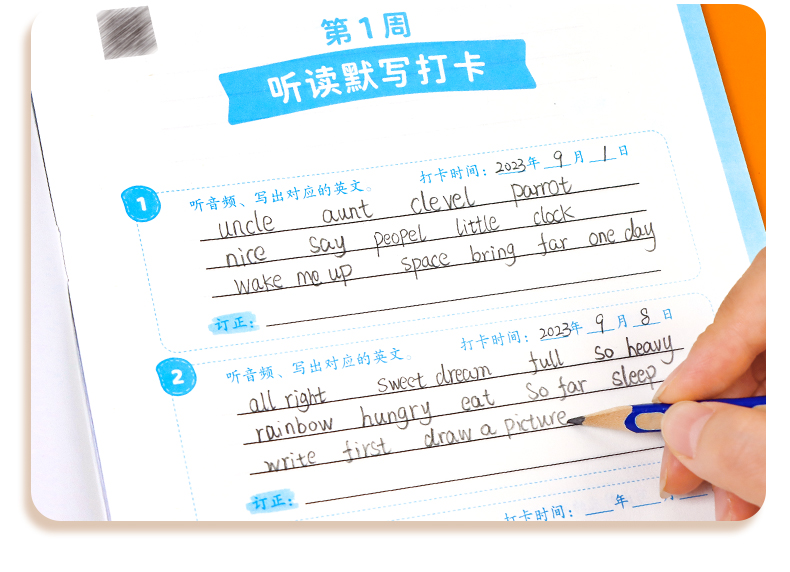 第1周
听读默写打卡
1
听音频、写出对应的英文。 打卡时间：2023年9月1日
uncle aunt clevel parrot
nice say peopel little clock
wake me up space bring far one day
订正：
2
听音频、写出对应的英文。 打卡时间：2023年9月8日
all right sweet dream full so heavy
rainbow hungry eat so far sleep
write first draw a picture
订正：
打卡时间：年月